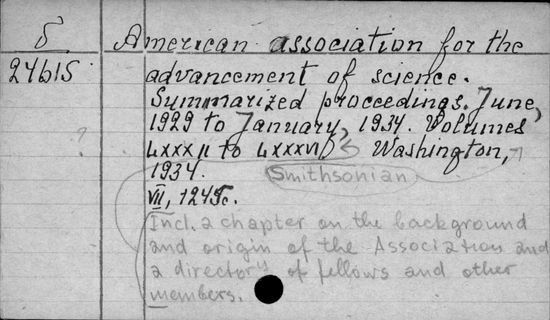 δ
24615
American association for the
advancement of science.
Summarized proceedings. June,
1929 to January, 1934. Volumes
LXXXII to LXXXVI) Washington,
1934.
Smithsonian
VII, 1245c.
Incl. a chapter on the background
and origin of the Association and
a directory of fellows and other
members.